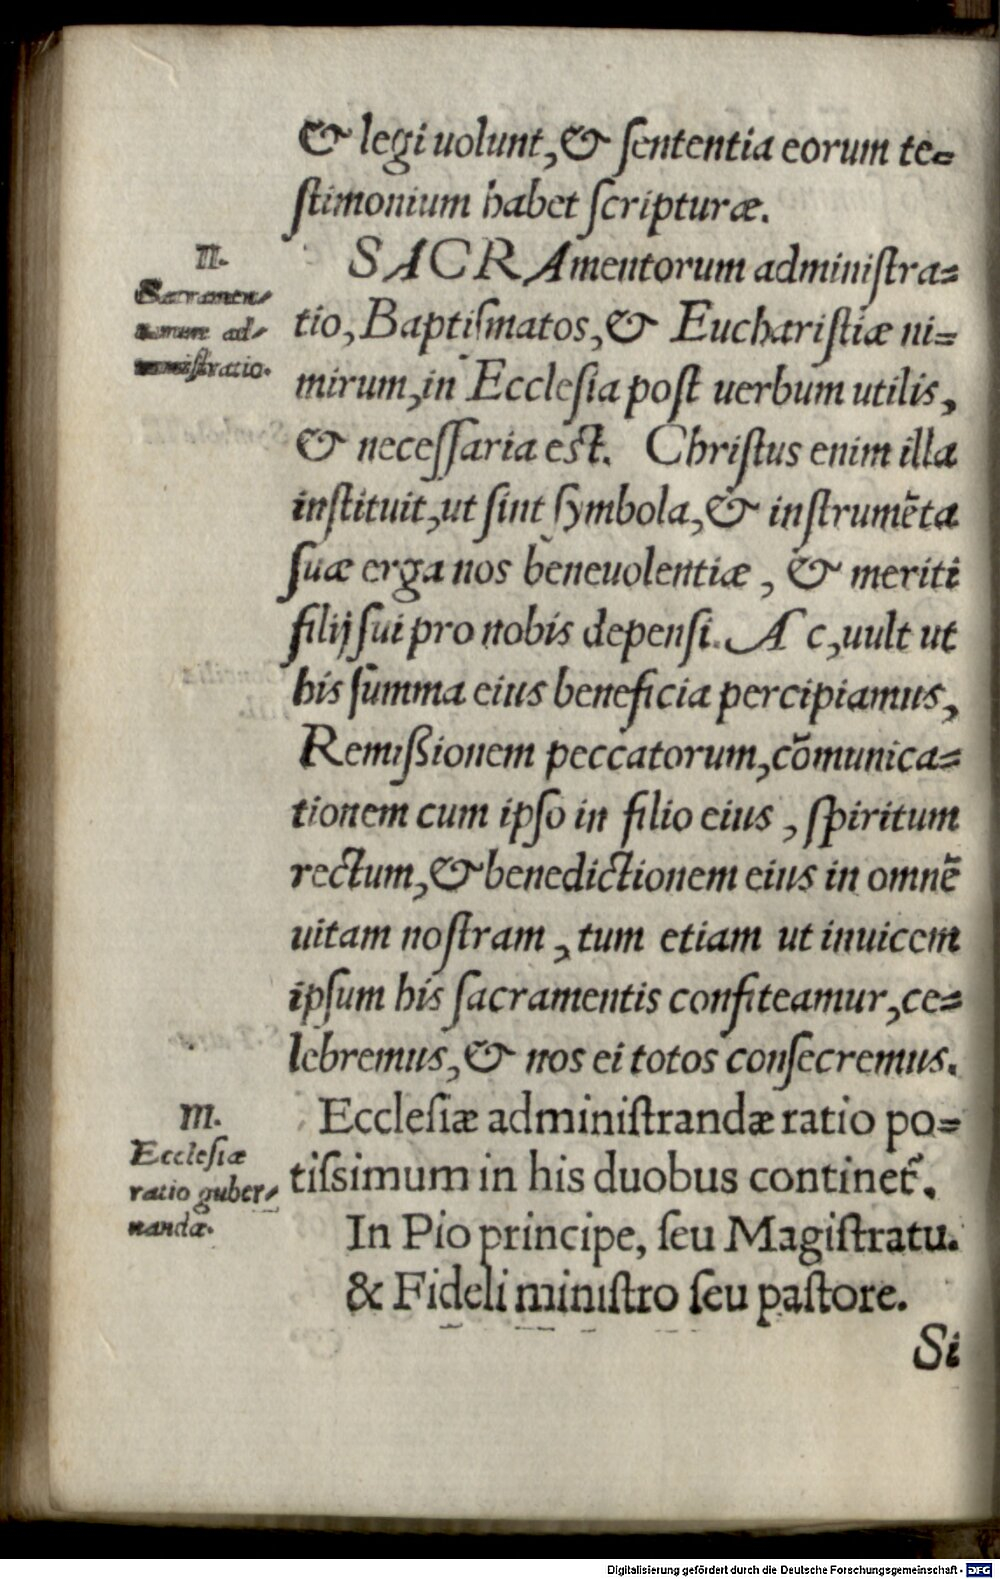 & legi uolunt, & ſententia eorum te=
ſtimonium habet ſcripturæ.
II.
Sacramen=
torum ad=
miniſtratio.
SACRAmentorum adminiſtra=
tio, Baptiſmatos, & Euchariſtiæ ni=
mirum, in Ecclesia poſt uerbum utilis,
& neceſſaria eſt. Chriſtus enim illa
inſtituit, ut ſint ſymbola, & inſtrumẽta
ſuæ erga nos beneuolentiæ, & meriti
filij ſui pro nobis depenſi. Ac, uult ut
his ſumma eius beneficia percipiamus,
Remißionem peccatorum, cõmunica=
tionem cum ipſo in filio eius, ſpiritum
rectum, & benedictionem eius in omnẽ
uitam noſtram, tum etiam ut inuicem
ipſum his ſacramentis confiteamur, ce=
lebremus, & nos ei totos conſecremus.
III.
Eccleſiæ
ratio guber=
nandæ.
Eccleſiæ adminiſtrandæ ratio po=
tiſsimum in his duobus continet᷑.
In Pio principe, ſeu Magiſtratu.
& Fideli miniſtro ſeu paſtore.
Si
Digitalisierung gefördert durch die Deutsche Forschungsgemeinschaft - DFG